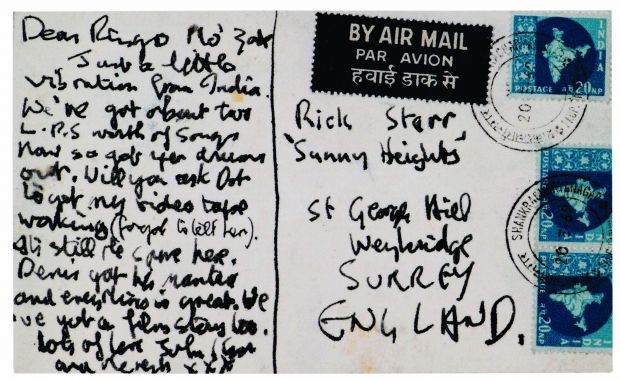 Dear Ringo Mo' Zak
Just a little
vibration from India.
We've got about two
L.P.S worth of Songs
now so get yer drums
out. Will you ask Dot
to get my video tape
working (forgot to tell her).
still the same here.
got his mantra
and everything is great. We
've got a film story too.
lots of love John
and xxx
BY AIR MAIL
PAR AVION
हवाई डाक से
Rick Starr
'Sunny Heights'
St George Hill
Weybridge
SURREY
ENGLAND.
INDIA
POSTAGE 20 NP
POSTAGE 20 NP
INDIA
POSTAGE 20 NP
INDIA